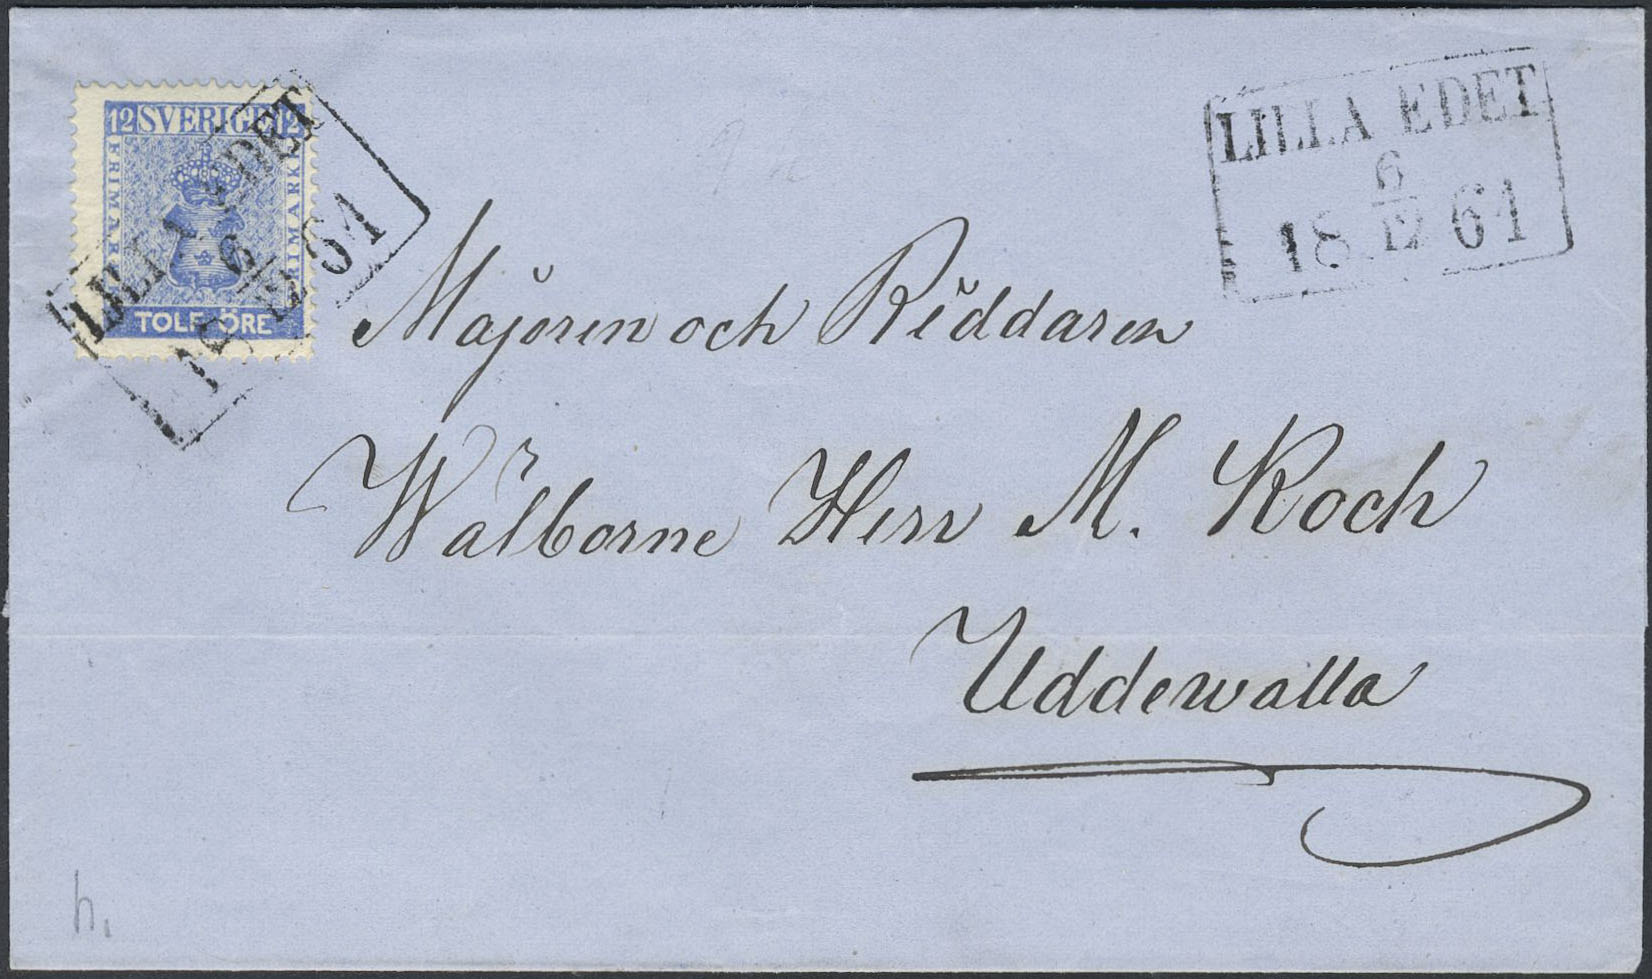 12 SVERIGE 12
FRIMÄRKE
FRIMÄRKE
TOLF ÖRE
LILLA EDET
6
18 12 61
LILLA EDET
6
18 12 61
Majoren och Riddaren
Wälborne Herr M. Koch
Uddewalla
h.